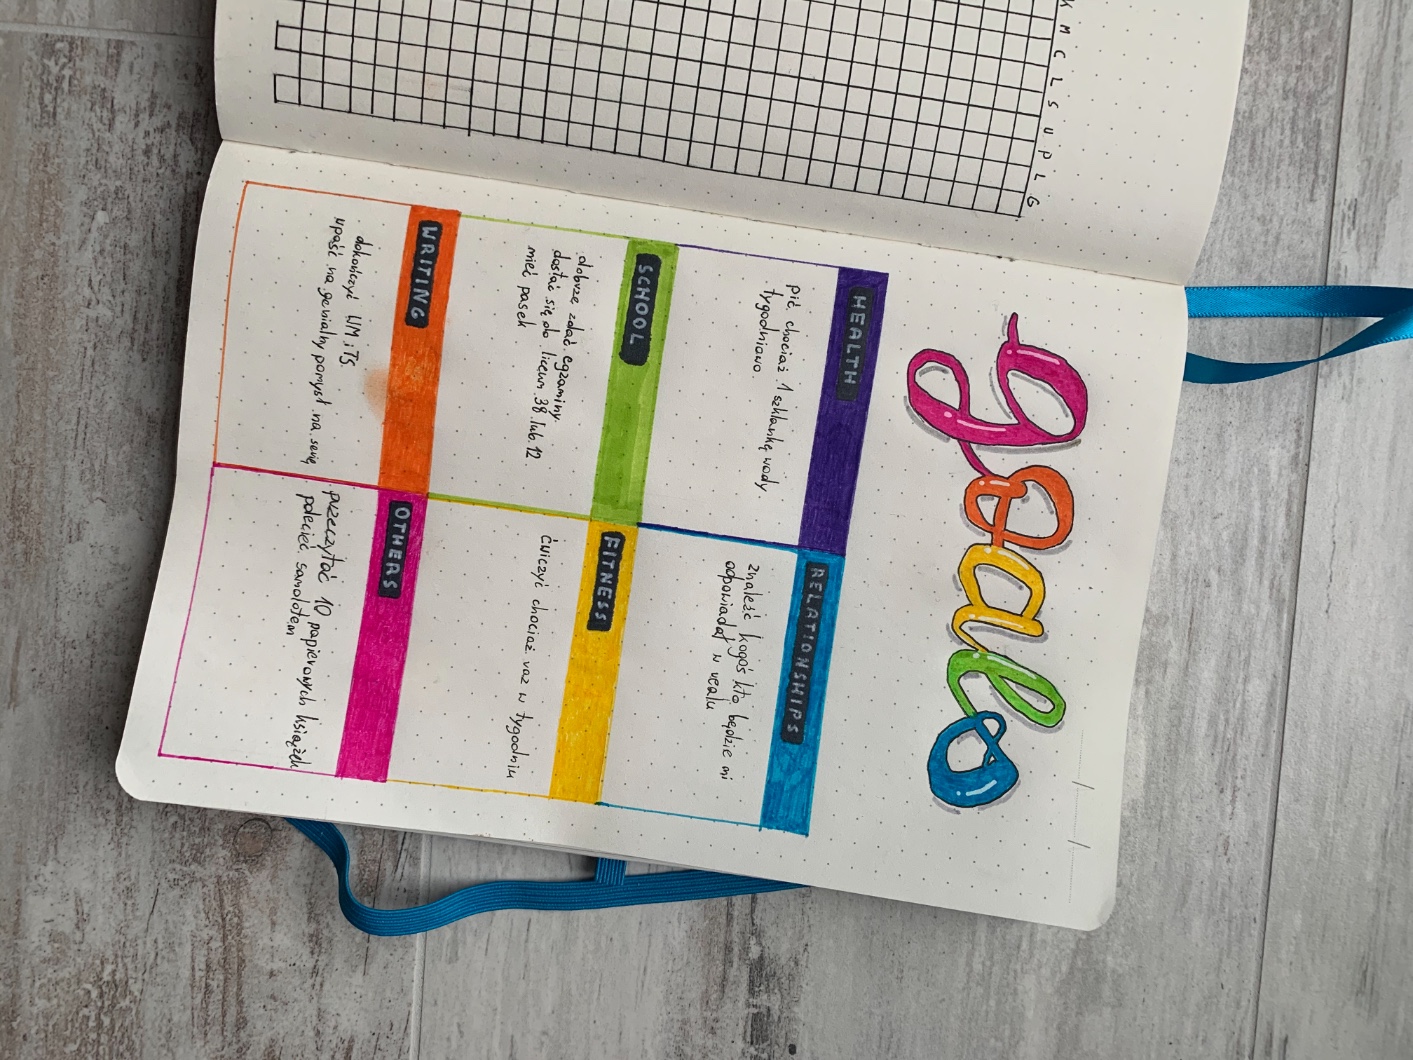 K
M
C
L
S
U
P
L
G
goals
HEALTH
pić chociaż 1 szklankę wody
tygodniowo
RELATIONSHIPS
znaleźć kogoś kto będzie mi
odpowiadał w realu
SCHOOL
dobrze zdać egzaminy
dostać się do liceum 38 lub 12
mieć pasek
FITNESS
ćwiczyć chociaż raz w tygodniu
WRITING
dokończyć WM i Ts
wpaść na genialny pomysł na serię
OTHERS
przeczytać 10 papierowych książek
polecieć samolotem